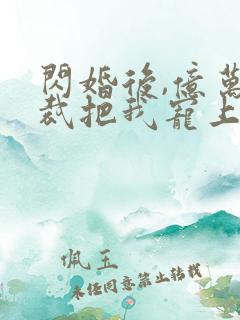 閃婚後,億萬
裁把我寵上
佩玉
未经同意禁止转载